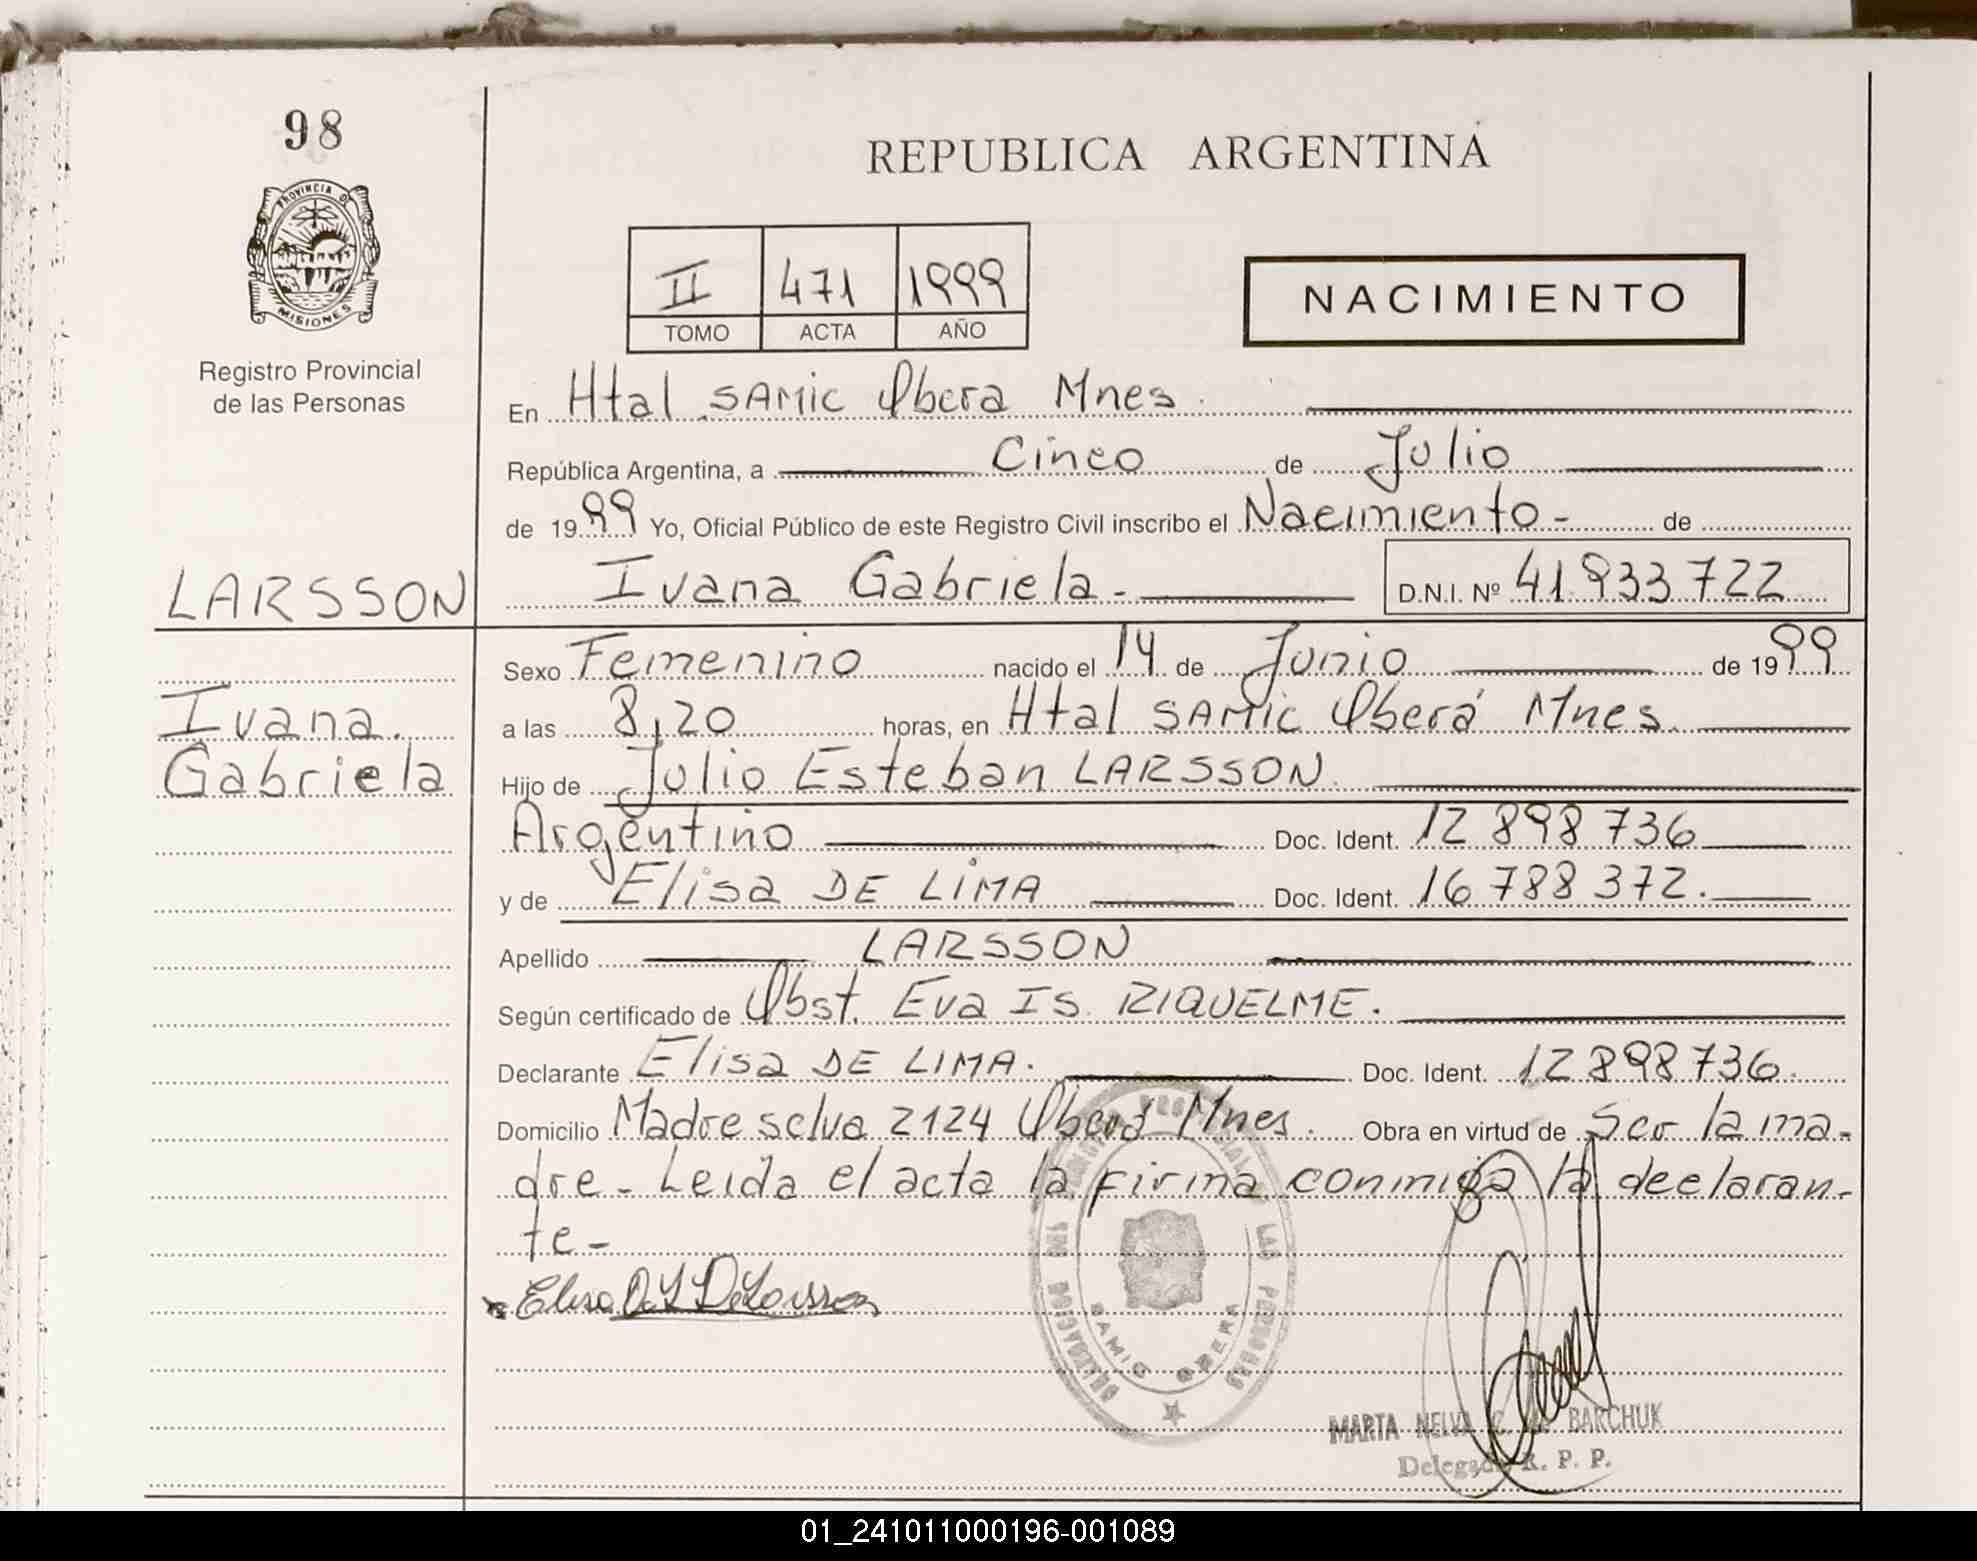 98
PROVINCIA DE
MISIONES
Registro Provincial
de las Personas
LARSSON
Ivana
Gabriela
REPUBLICA ARGENTINA
II 471 1999
TOMO ACTA AÑO
NACIMIENTO
En Htal SAMIC Obera Mnes.
República Argentina, a Cinco de Julio
de 1999 Yo, Oficial Público de este Registro Civil inscribo el Nacimiento - de
Ivana Gabriela.- D.N.I. Nº 41.933722
Sexo Femenino nacido el 14 de Junio de 1999
a las 8,20 horas, en Htal SAMIC Oberá Mnes.
Hijo de Julio Esteban LARSSON.
Argentino Doc. Ident. 12 898 736
y de Elisa DE LIMA Doc. Ident. 16 788 372.
Apellido LARSSON
Según certificado de Obst. Eva IS. RIQUELME.
Declarante Elisa DE LIMA. Doc. Ident. 12 898 736.
Domicilio Madreselva 2124 Oberá Mnes. Obra en virtud de Ser la ma-
dre - Leida el acta la firma conmigo la declaran-
te -
Elisa
SAMIC OBERA
MARTA NELVA C. DE BARCHUK
Delegada R. P. P.
01_241011000196-001089